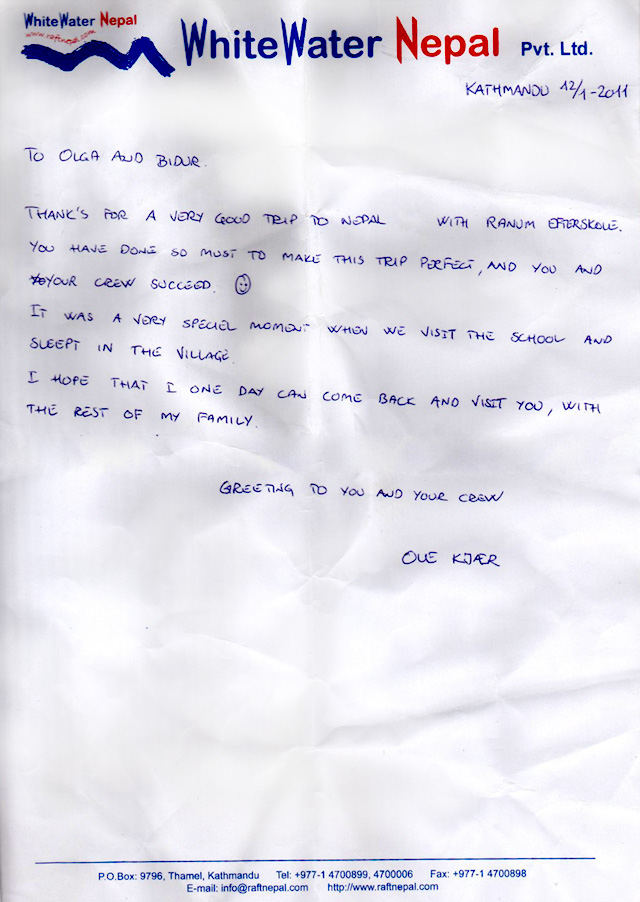 WhiteWater Nepal
www.raftnepal.com
WhiteWater Nepal Pvt. Ltd.
KATHMANDU 12/1-2011
TO OLGA AND BIDUR.
THANK'S FOR A VERY GOOD TRIP TO NEPAL WITH RANUM EFTERSKOLE.
YOU HAVE DONE SO MUST TO MAKE THIS TRIP PERFECT, AND YOU AND
YOUR CREW SUCCEED. ☺
IT WAS A VERY SPECIEL MOMENT WHEN WE VISIT THE SCHOOL AND
SLEEPT IN THE VILLAGE.
I HOPE THAT I ONE DAY CAN COME BACK AND VISIT YOU, WITH
THE REST OF MY FAMILY.
GREETING TO YOU AND YOUR CREW
OLE KJÆR
P.O.Box: 9796, Thamel, Kathmandu Tel: +977-1 4700899, 4700006 Fax: +977-1 4700898
E-mail: info@raftnepal.com http://www.raftnepal.com